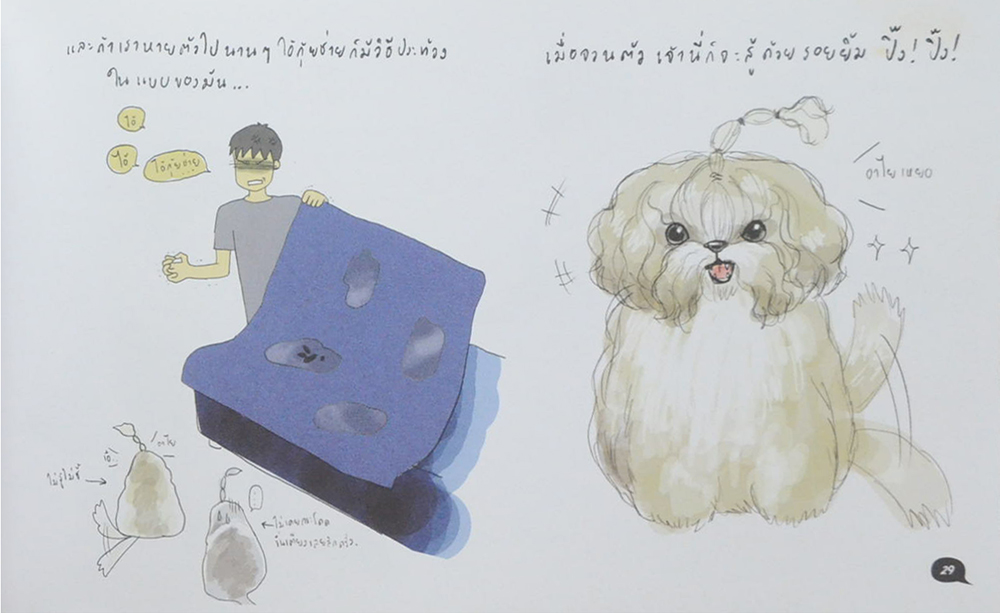 และถ้าเราหายตัวไปนานๆ ไอ้กุ้ยช่ายก็มีวิธีประท้วง
ในแบบของมัน...
ไอ้
ไอ้
ไอ้กุ้ยช่าย
เมื่อจวนตัว เจ้านี่ก็จะสู้ด้วยรอยยิ้ม ปิ๊ง! ปิ๊ง!
อาไยเหยอ
อาไย
ไม่รู้ไม่ชี้
ไม่เคยกระโดด
ขึ้นเตียงเลยสักครั้ง
29